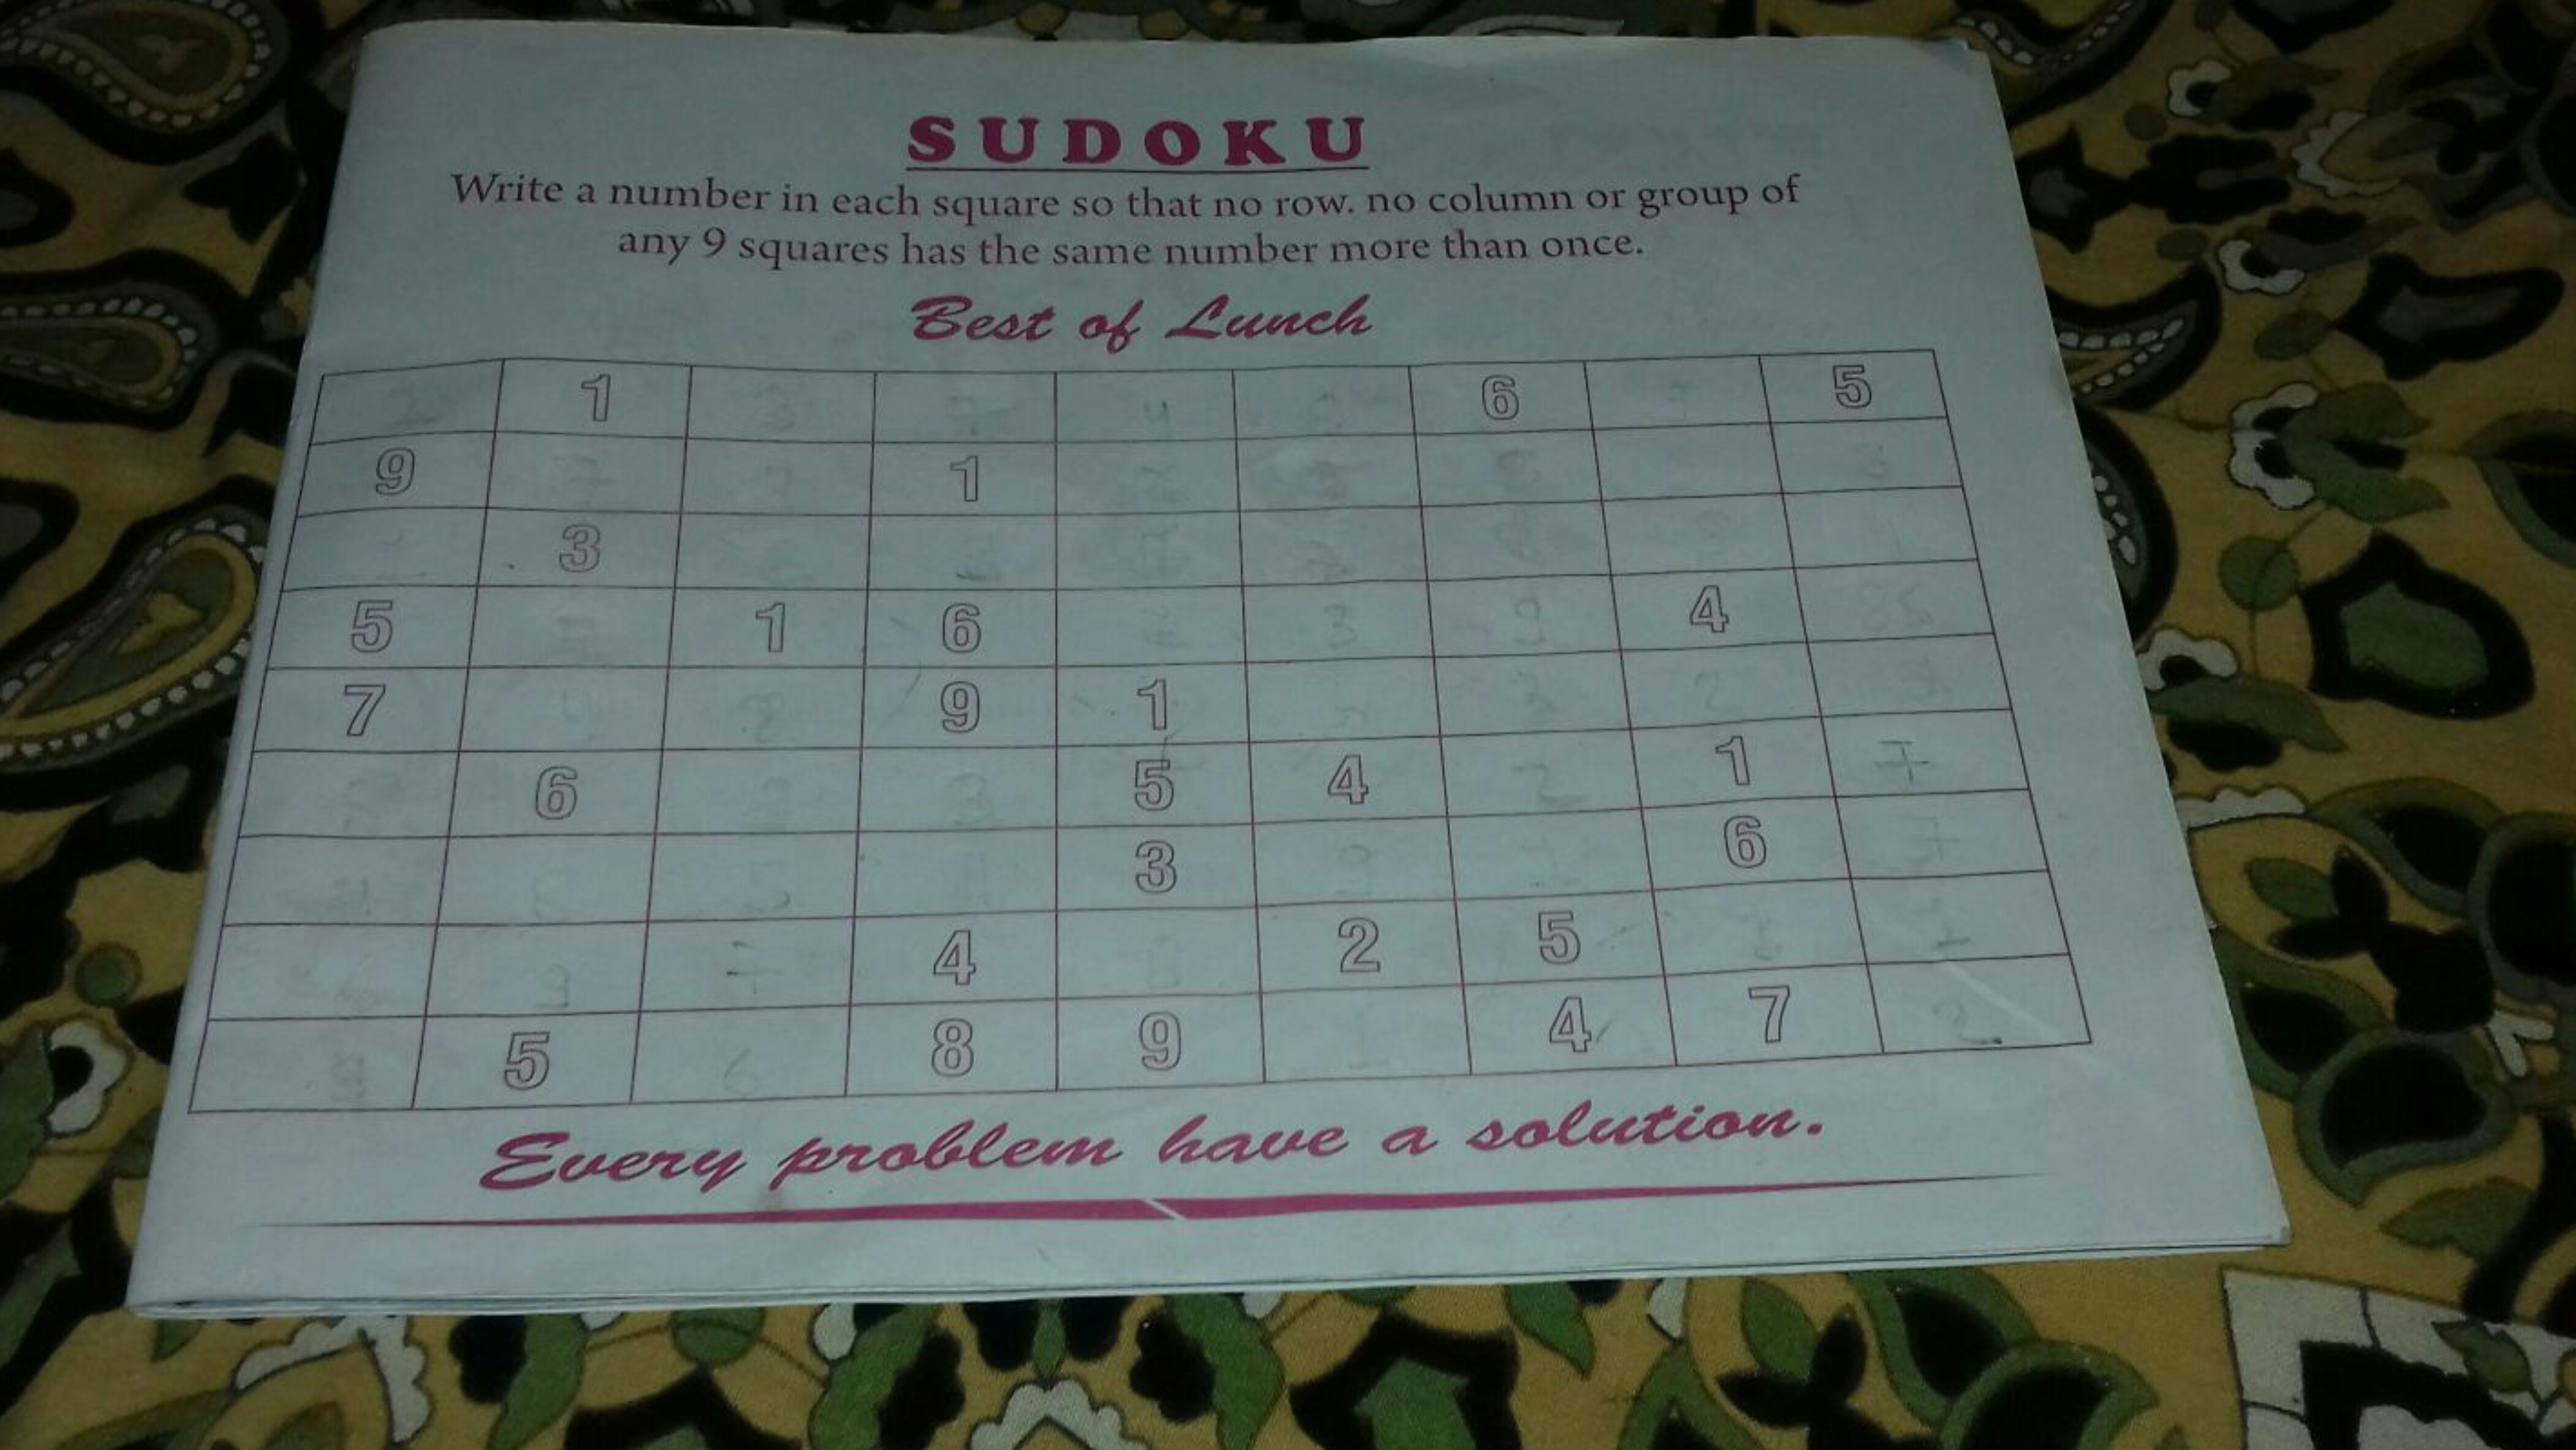 SUDOKU
Write a number in each square so that no row. no column or group of
any 9 squares has the same number more than once.
Best of Lunch
1 6 5
9 1
3
5 1 6 4
7 9 1
6 5 4 1
3 6
4 2 5
5 8 9 4 7
Every problem have a solution.